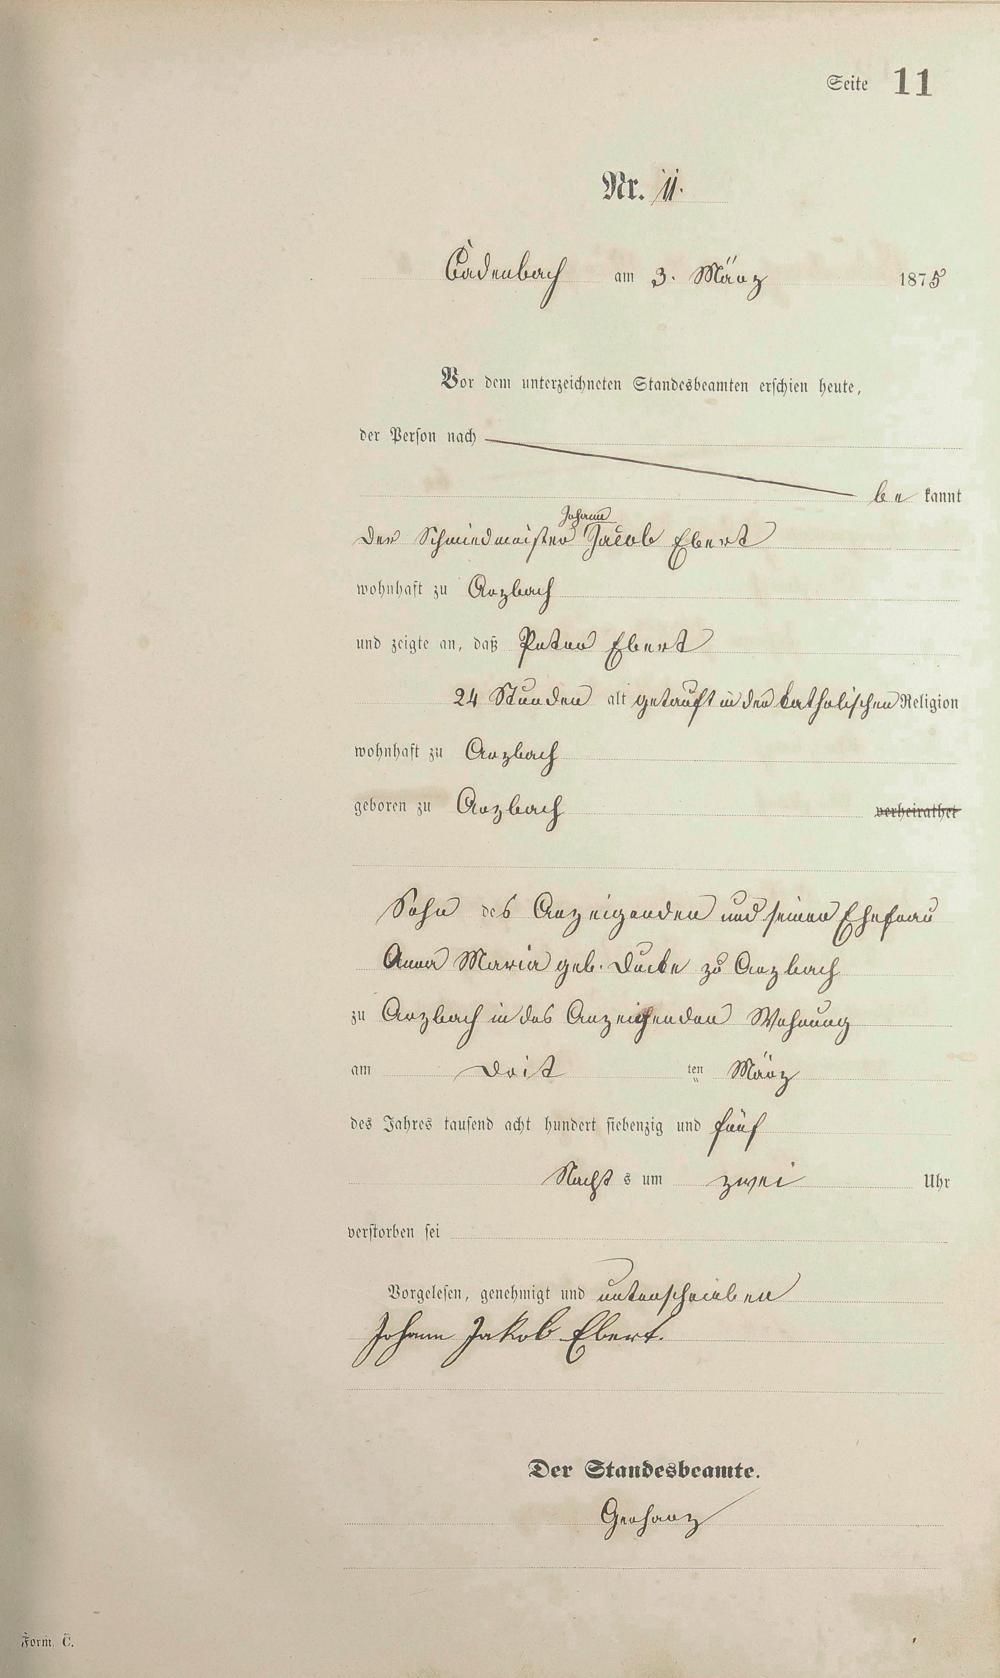 Seite 11
Nr. 11.
Cadenbach am 3. März 1875
Vor dem unterzeichneten Standesbeamten erschien heute,
der Person nach
be kannt
der Schmiedmeister Johann Jacob Ebert
wohnhaft zu Arzbach
und zeigte an, daß Peter Ebert
24 Stunden alt getauft in der katholischen Religion
wohnhaft zu Arzbach
geboren zu Arzbach verheirathet
Sohn des Anzeigenden und seiner Ehefrau
Anna Maria geb. zu Arzbach
zu Arzbach in des Anzeigenden Wohnung
am Drit ten März
des Jahres tausend acht hundert siebenzig und fünf
Nacht s um zwei Uhr
verstorben sei
Vorgelesen, genehmigt und unterschrieben
Johann Jakob Ebert.
Der Standesbeamte.
Gerharz
Form. C.